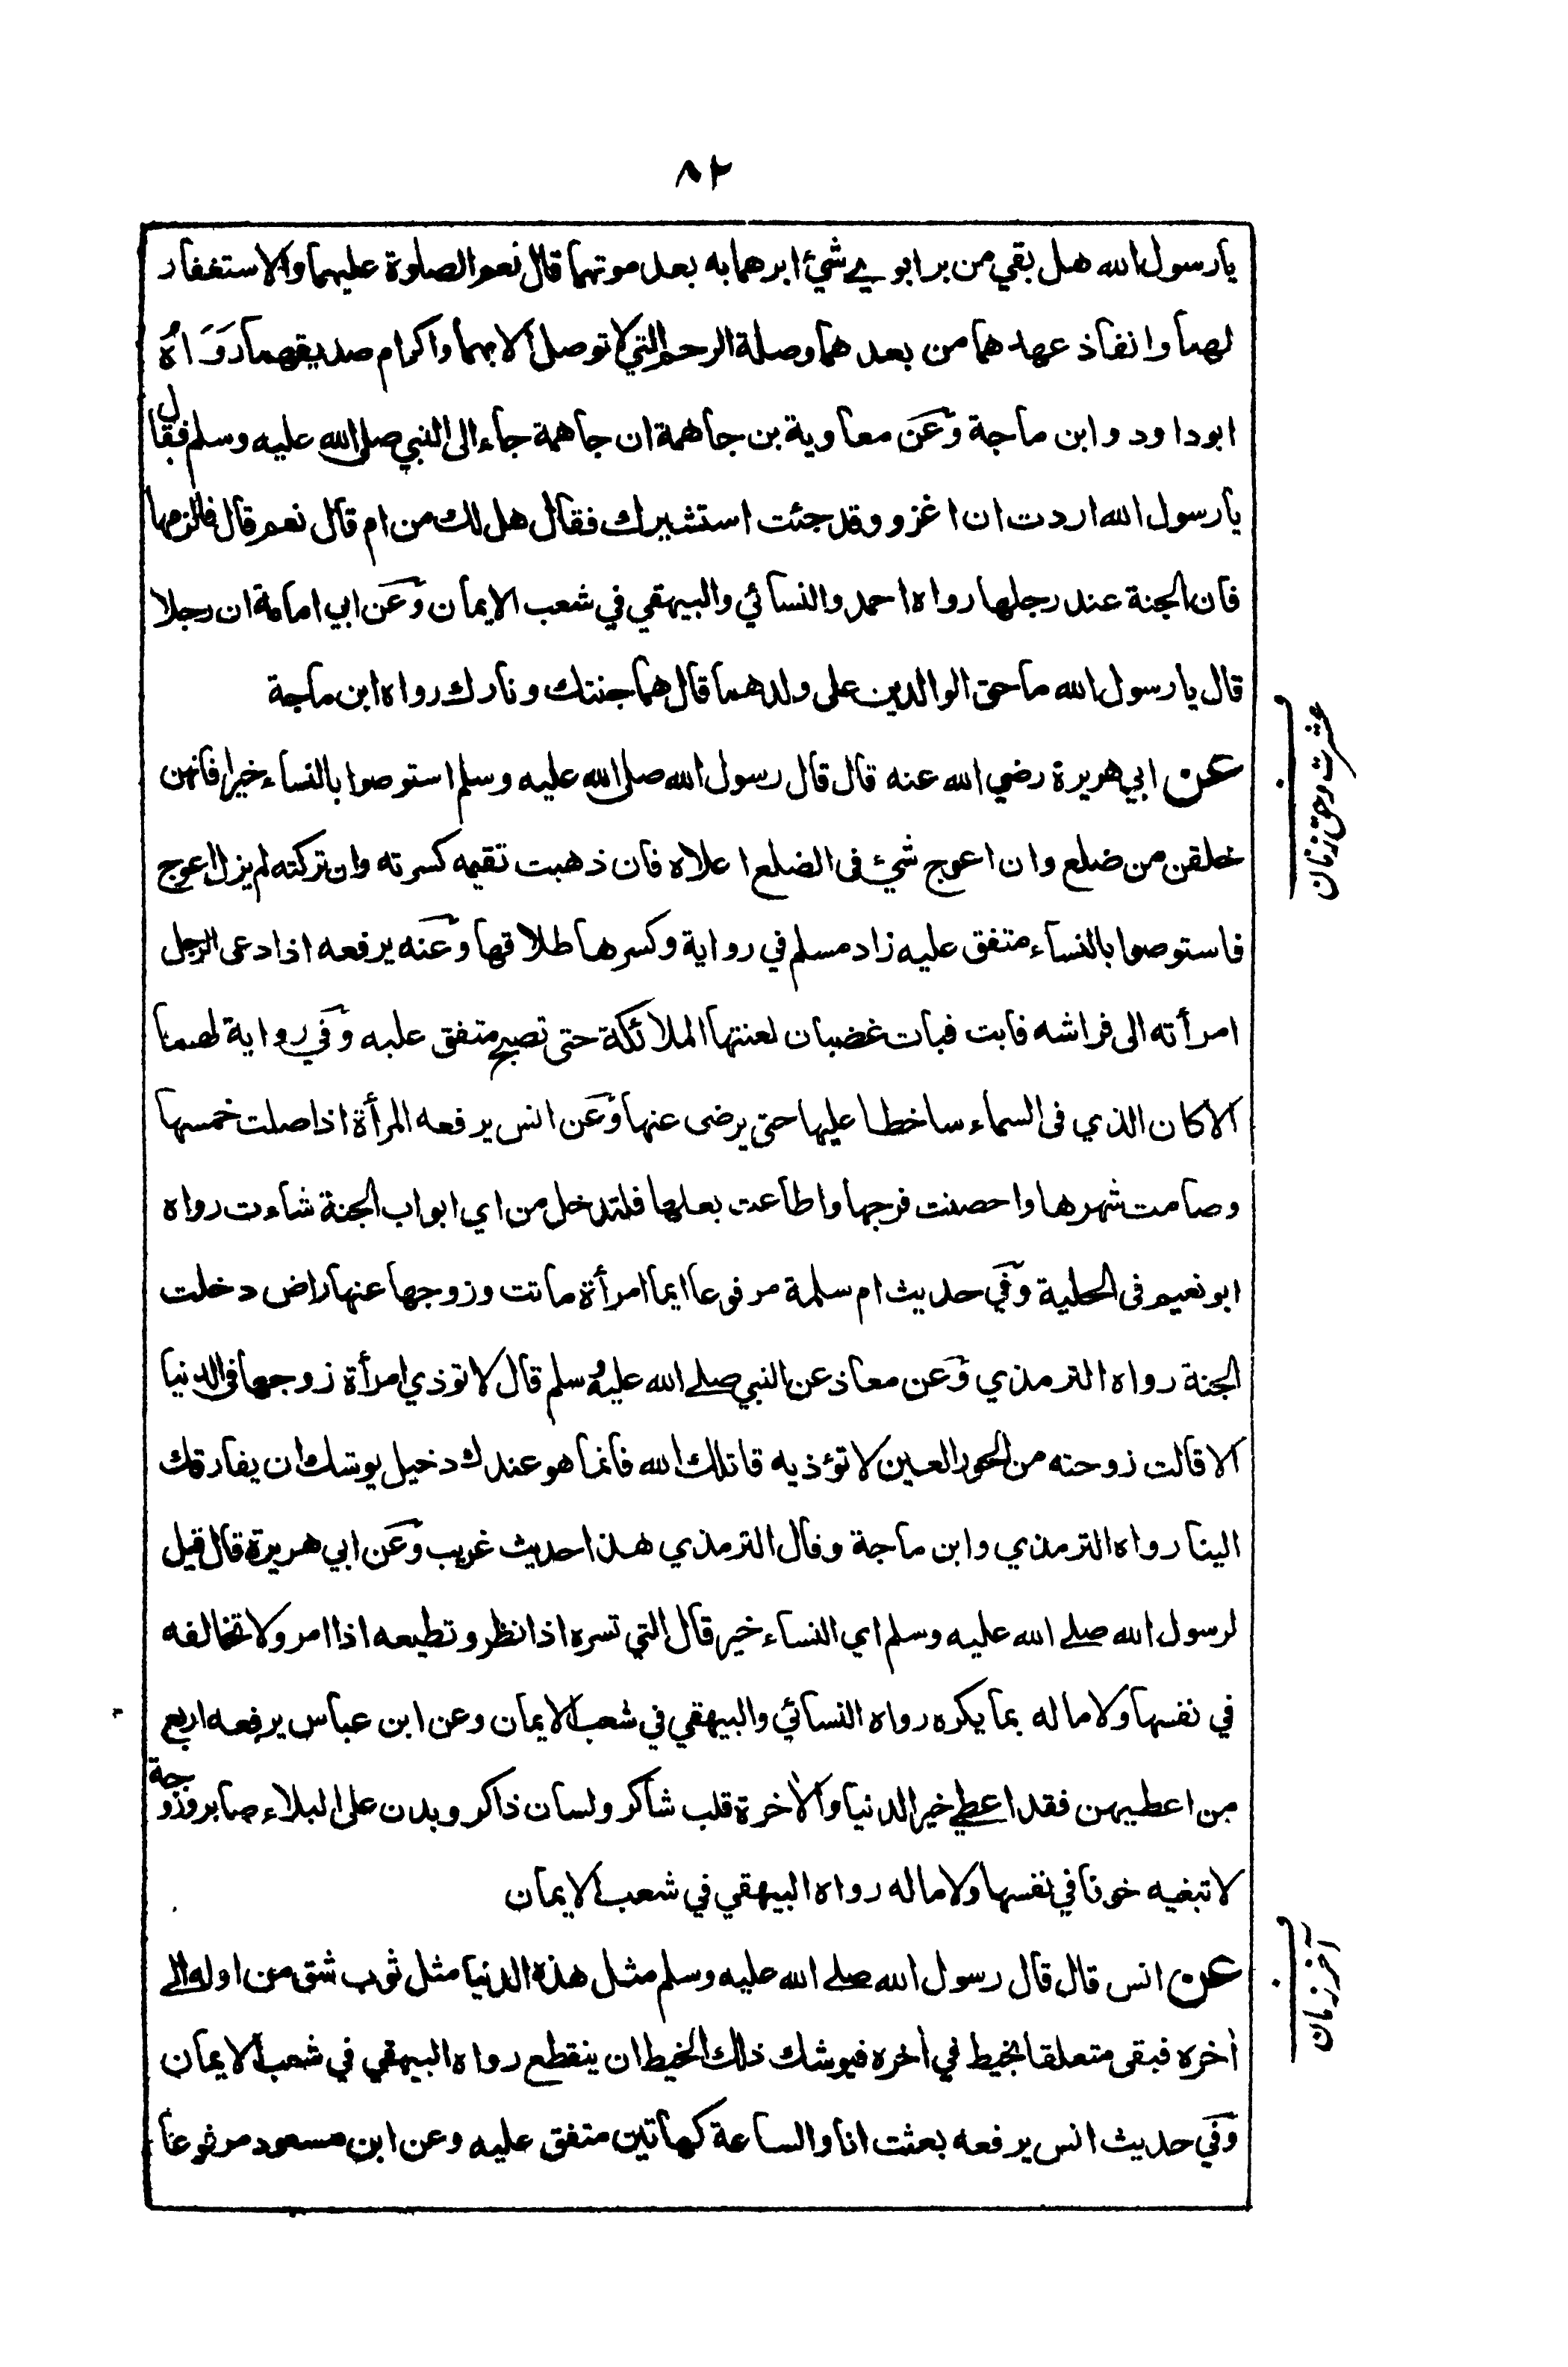 ٨٢
يارسول الله هل بقي من بر ابويے شئ ابرهما به بعد موتهما قال نعم الصلوة عليهما والاستغفار
لهما وانفاذ عهدهما من بعدهما وصلة الرحم التي لا توصل الا بهما واكرام صديقهما رواه
ابوداود وابن ماجة وعن معاوية بن جاهمة ان جاهمة جاء الى النبي صلى الله عليه وسلم فقال
يارسول الله اردت ان اغزو وقد جئت استشيرك فقال هل لك من ام قال نعم قال فالزمها
فان الجنة عند رجلها رواه احمد والنسائي والبيهقي في شعب الايمان وعن ابي امامة ان رجلا
قال يارسول الله ما حق الوالدين على ولدهما قال هما جنتك ونارك رواه ابن ماجة
عشرت وحق زنان
عن ابي هريرة رضي الله عنه قال قال رسول الله صلى الله عليه وسلم استوصوا بالنساء خيرا فانهن
خلقن من ضلع وان اعوج شئ فى الضلع اعلاه فان ذهبت تقيمه كسرته وان تركته لم يزل اعوج
فاستوصوا بالنساء متفق عليه زاد مسلم في رواية وكسرها طلاقها وعنه يرفعه اذا دعى الرجل
امرأته الى فراشه فابت فبات غضبان لعنتها الملائكة حتى تصبح متفق عليه وفي رواية لهما
الا كان الذي فى السماء ساخطا عليها حتى يرضى عنها وعن انس يرفعه المرأة اذا صلت خمسها
وصامت شهرها واحصنت فرجها واطاعت بعلها فلتدخل من اي ابواب الجنة شاءت رواه
ابو نعيم فى الحلية وفي حديث ام سلمة مرفوعا ايما امرأة ماتت وزوجها عنها راض دخلت
الجنة رواه الترمذي وعن معاذ عن النبي صلے الله عليه وسلم قال لا توذي امرأة زوجها فى الدنيا
الا قالت زوجته من الحور العين لا تؤذيه قاتلك الله فانما هو عندك دخيل يوشك ان يفارقك
الينا رواه الترمذي وابن ماجة وقال الترمذي هذا حديث غريب وعن ابي هريرة قال قيل
لرسول الله صلے الله عليه وسلم اي النساء خير قال التي تسره اذا نظر وتطيعه اذا امر ولا تخالفه
في نفسها ولا ماله بما يكره رواه النسائي والبيهقي في شعب الايمان وعن ابن عباس يرفعه اربع
من اعطيهن فقد اعطے خير الدنيا والاخرة قلب شاكر ولسان ذاكر وبدن على البلاء صابر وزوجة
لا تبغيه خونا في نفسها ولا ماله رواه البيهقي في شعب الايمان
آخر زمان
عن انس قال قال رسول الله صلے الله عليه وسلم مثل هذه الدنيا مثل ثوب شق من اوله الے
أخره فبقى متعلقا بخيط في أخره فيوشك ذلك الخيط ان ينقطع رواه البيهقي في شعب الايمان
وفي حديث انس يرفعه بعثت انا والساعة كهاتين متفق عليه وعن ابن مسعود مرفوعا